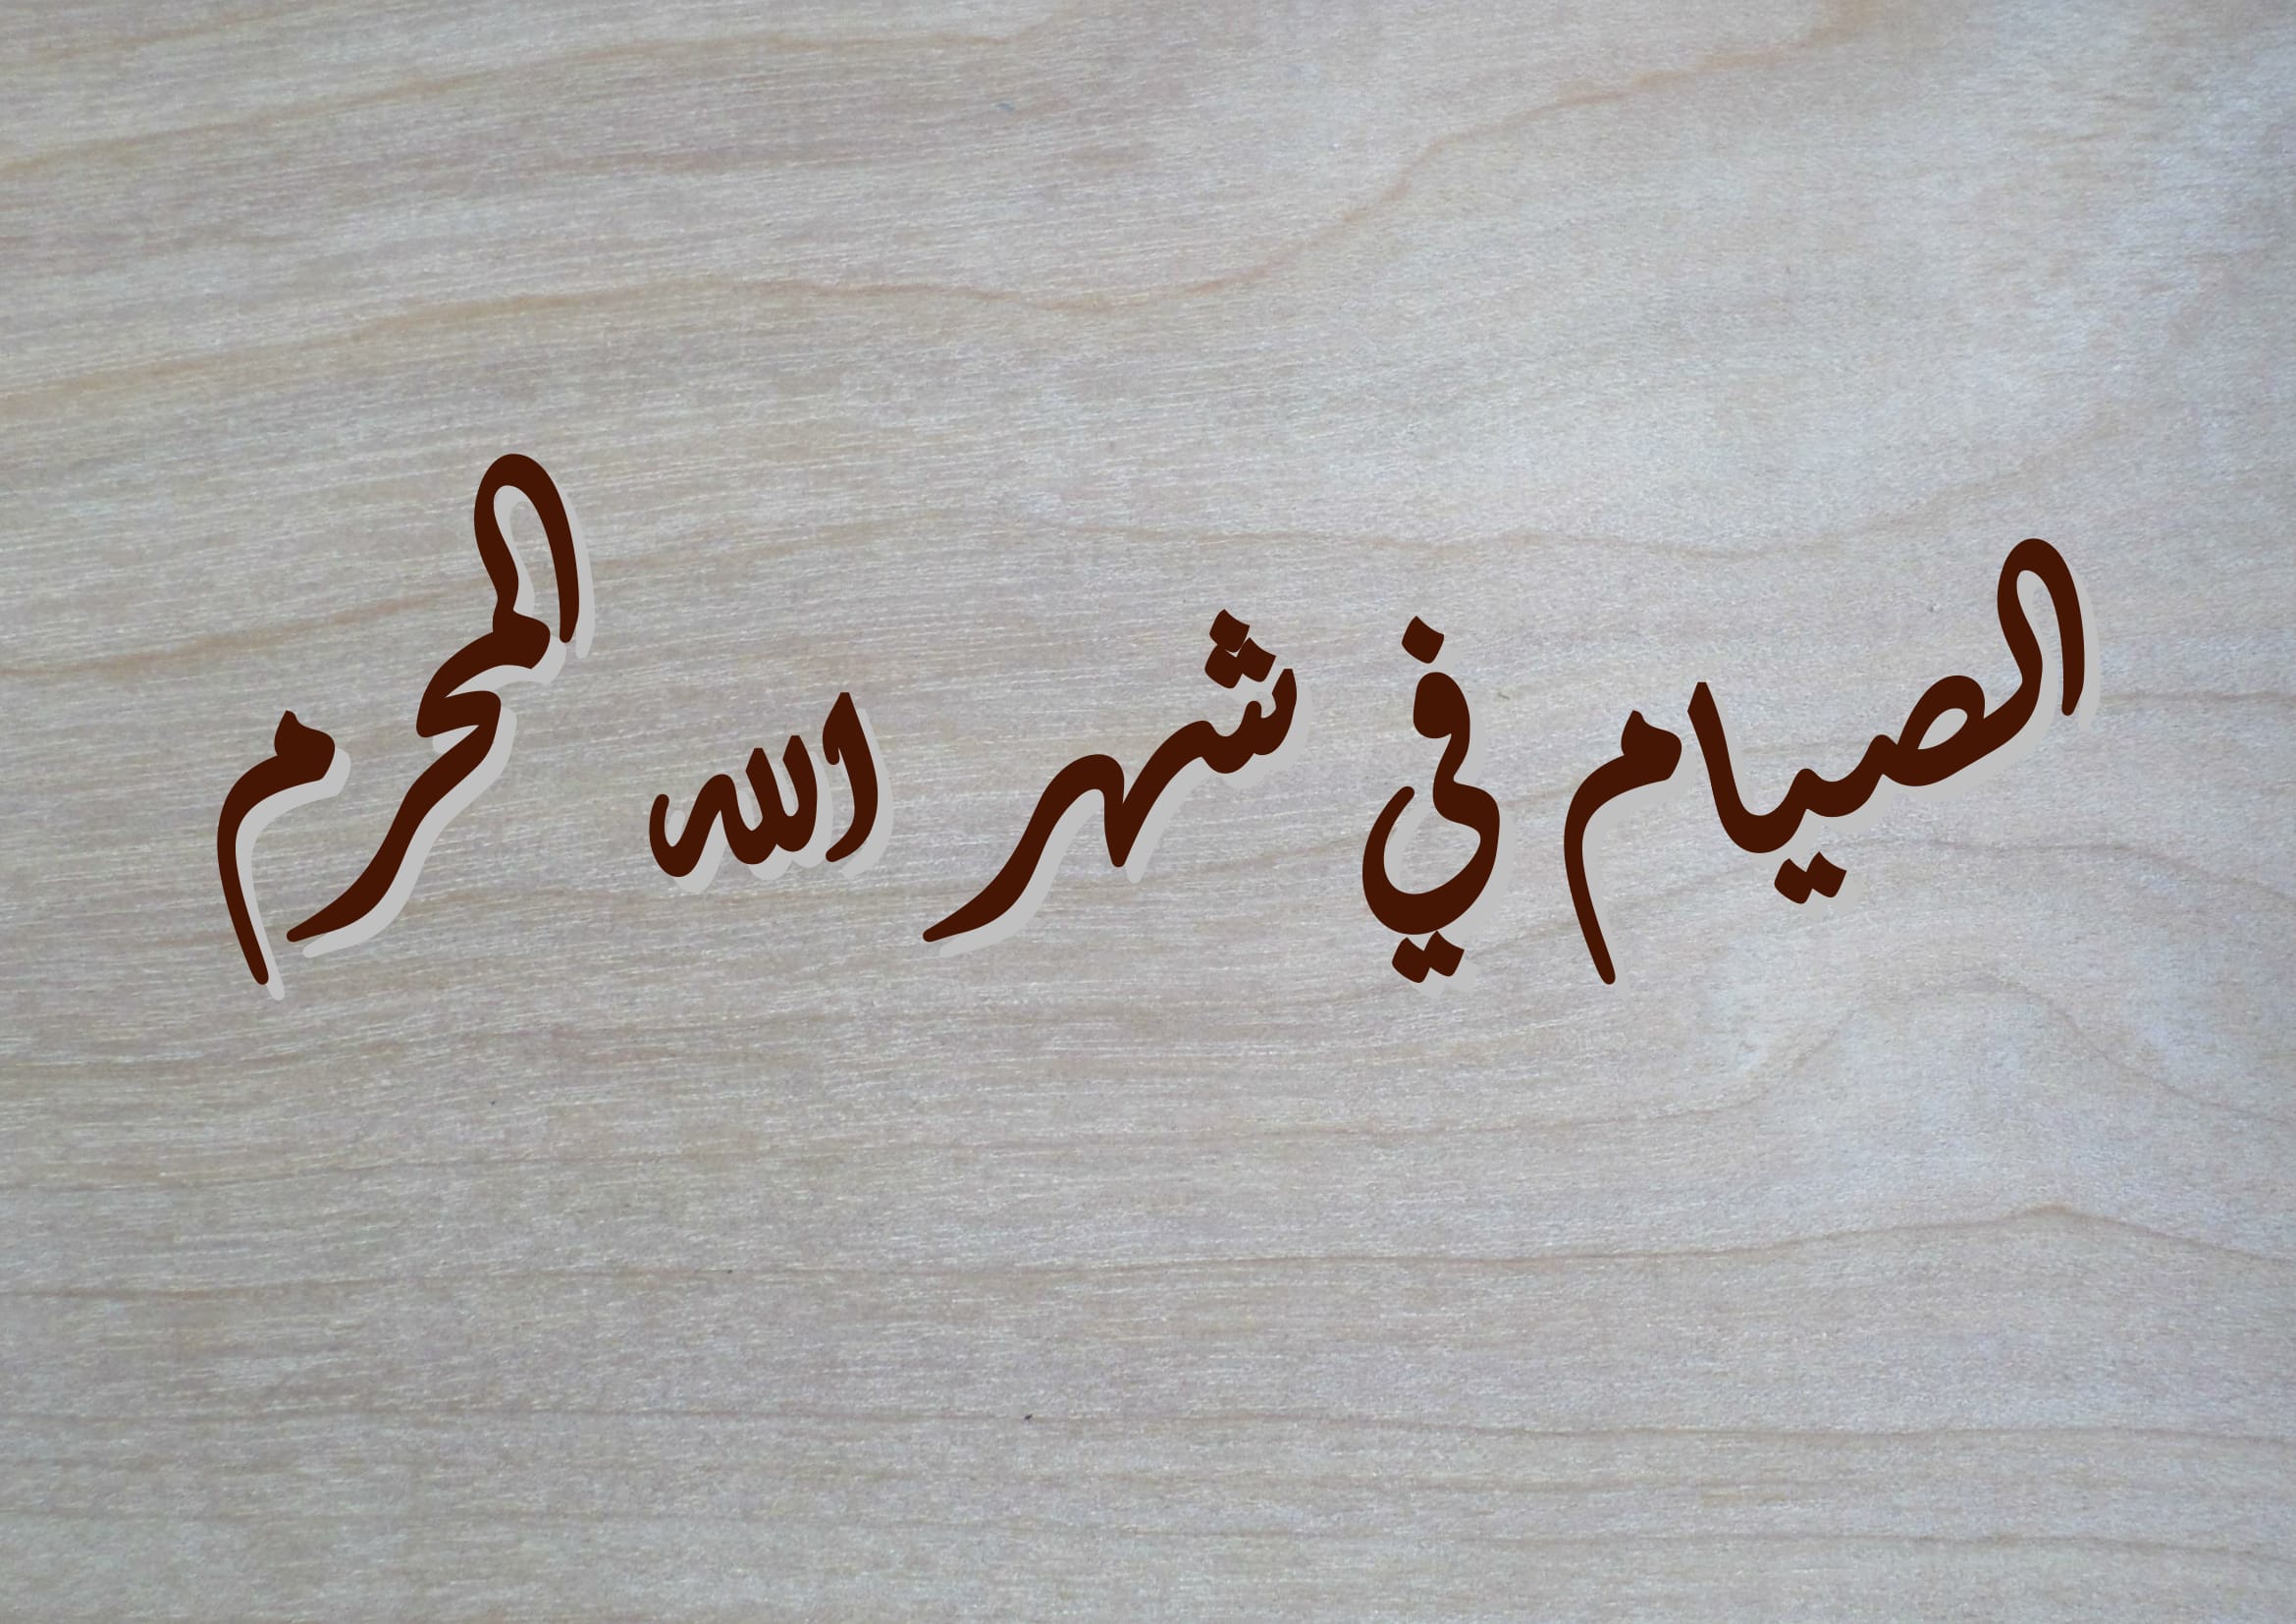 الصيام في شهر الله المحرم